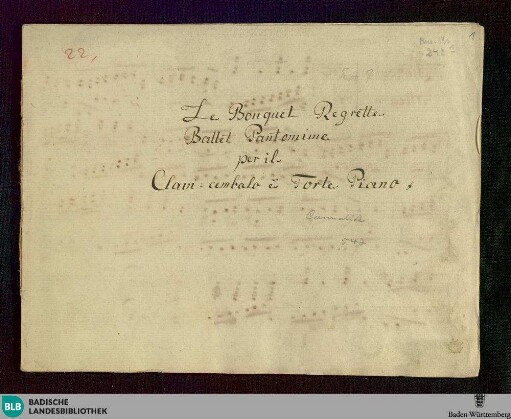 22,
1
Le Bouquet Regrette
Ballet Pantomime
per il
Clavi-cembalo è Forte Piano,
547
BLB BADISCHE
LANDESBIBLIOTHEK
Baden-Württemberg